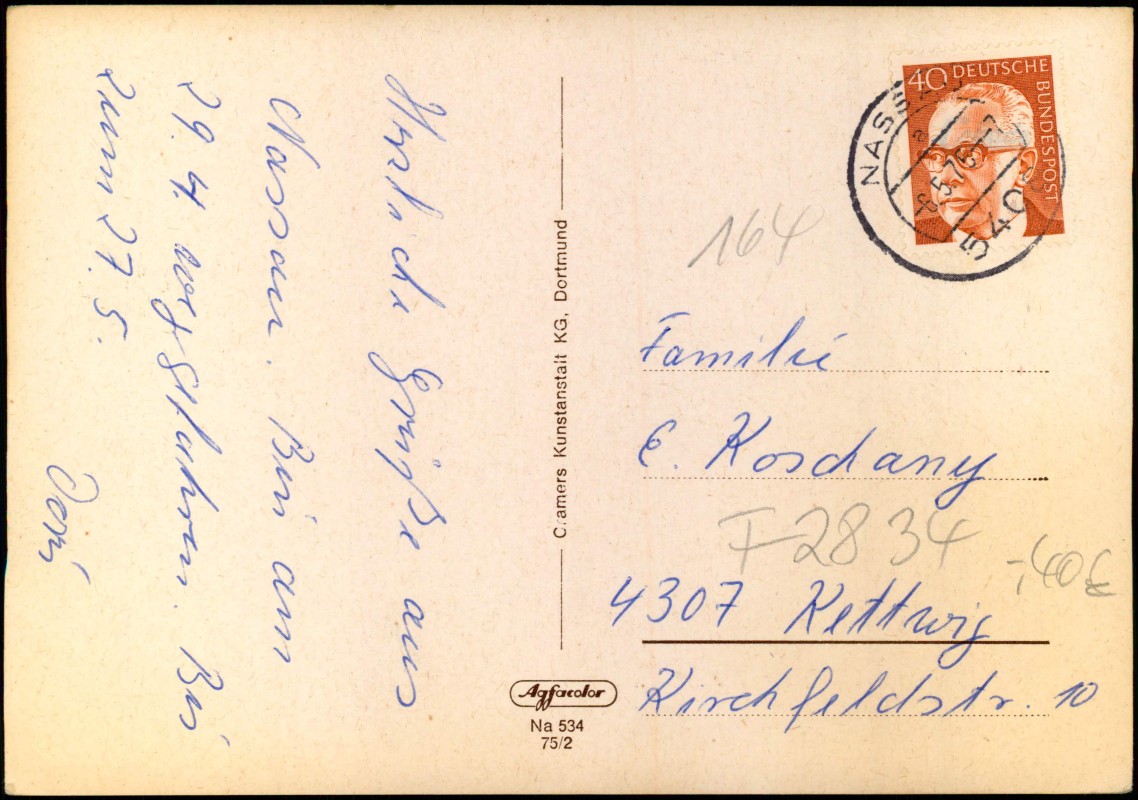 Herzliche Grüße aus
Nassau. Bin am
29. 4. weggefahren. Bis
zum 27. 5.
Cramers Kunstanstalt KG, Dortmund
Agfacolor
Na 534
75/2
40 DEUTSCHE
BUNDESPOST
-6.5.76-
540
164
Familie
E. Koschany
F2834
-,40€
4307 Kettwig
Kirchfeldstr. 10